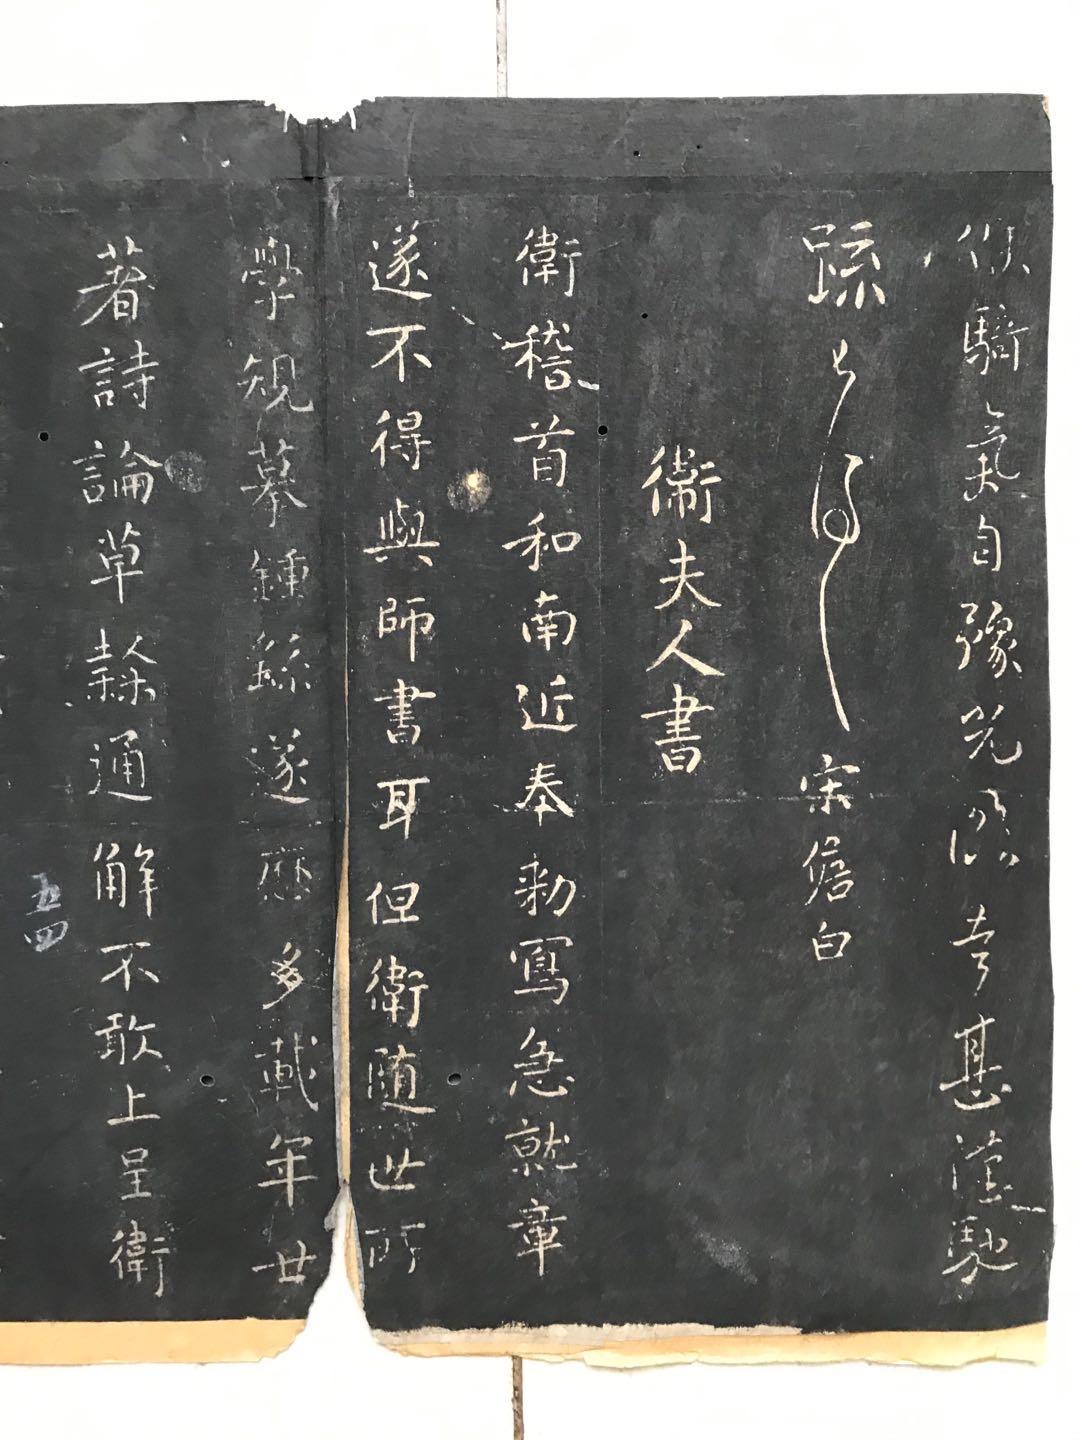 騎氣自豫兄顧書甚漢馳
疏
宋儋白
衛夫人書
衛稽首和南近奉勑寫急就章
遂不得與師書耳但衛随世所
學規摹鍾繇遂歷多載年廿
著詩論草隸通解不敢上呈衛
五四